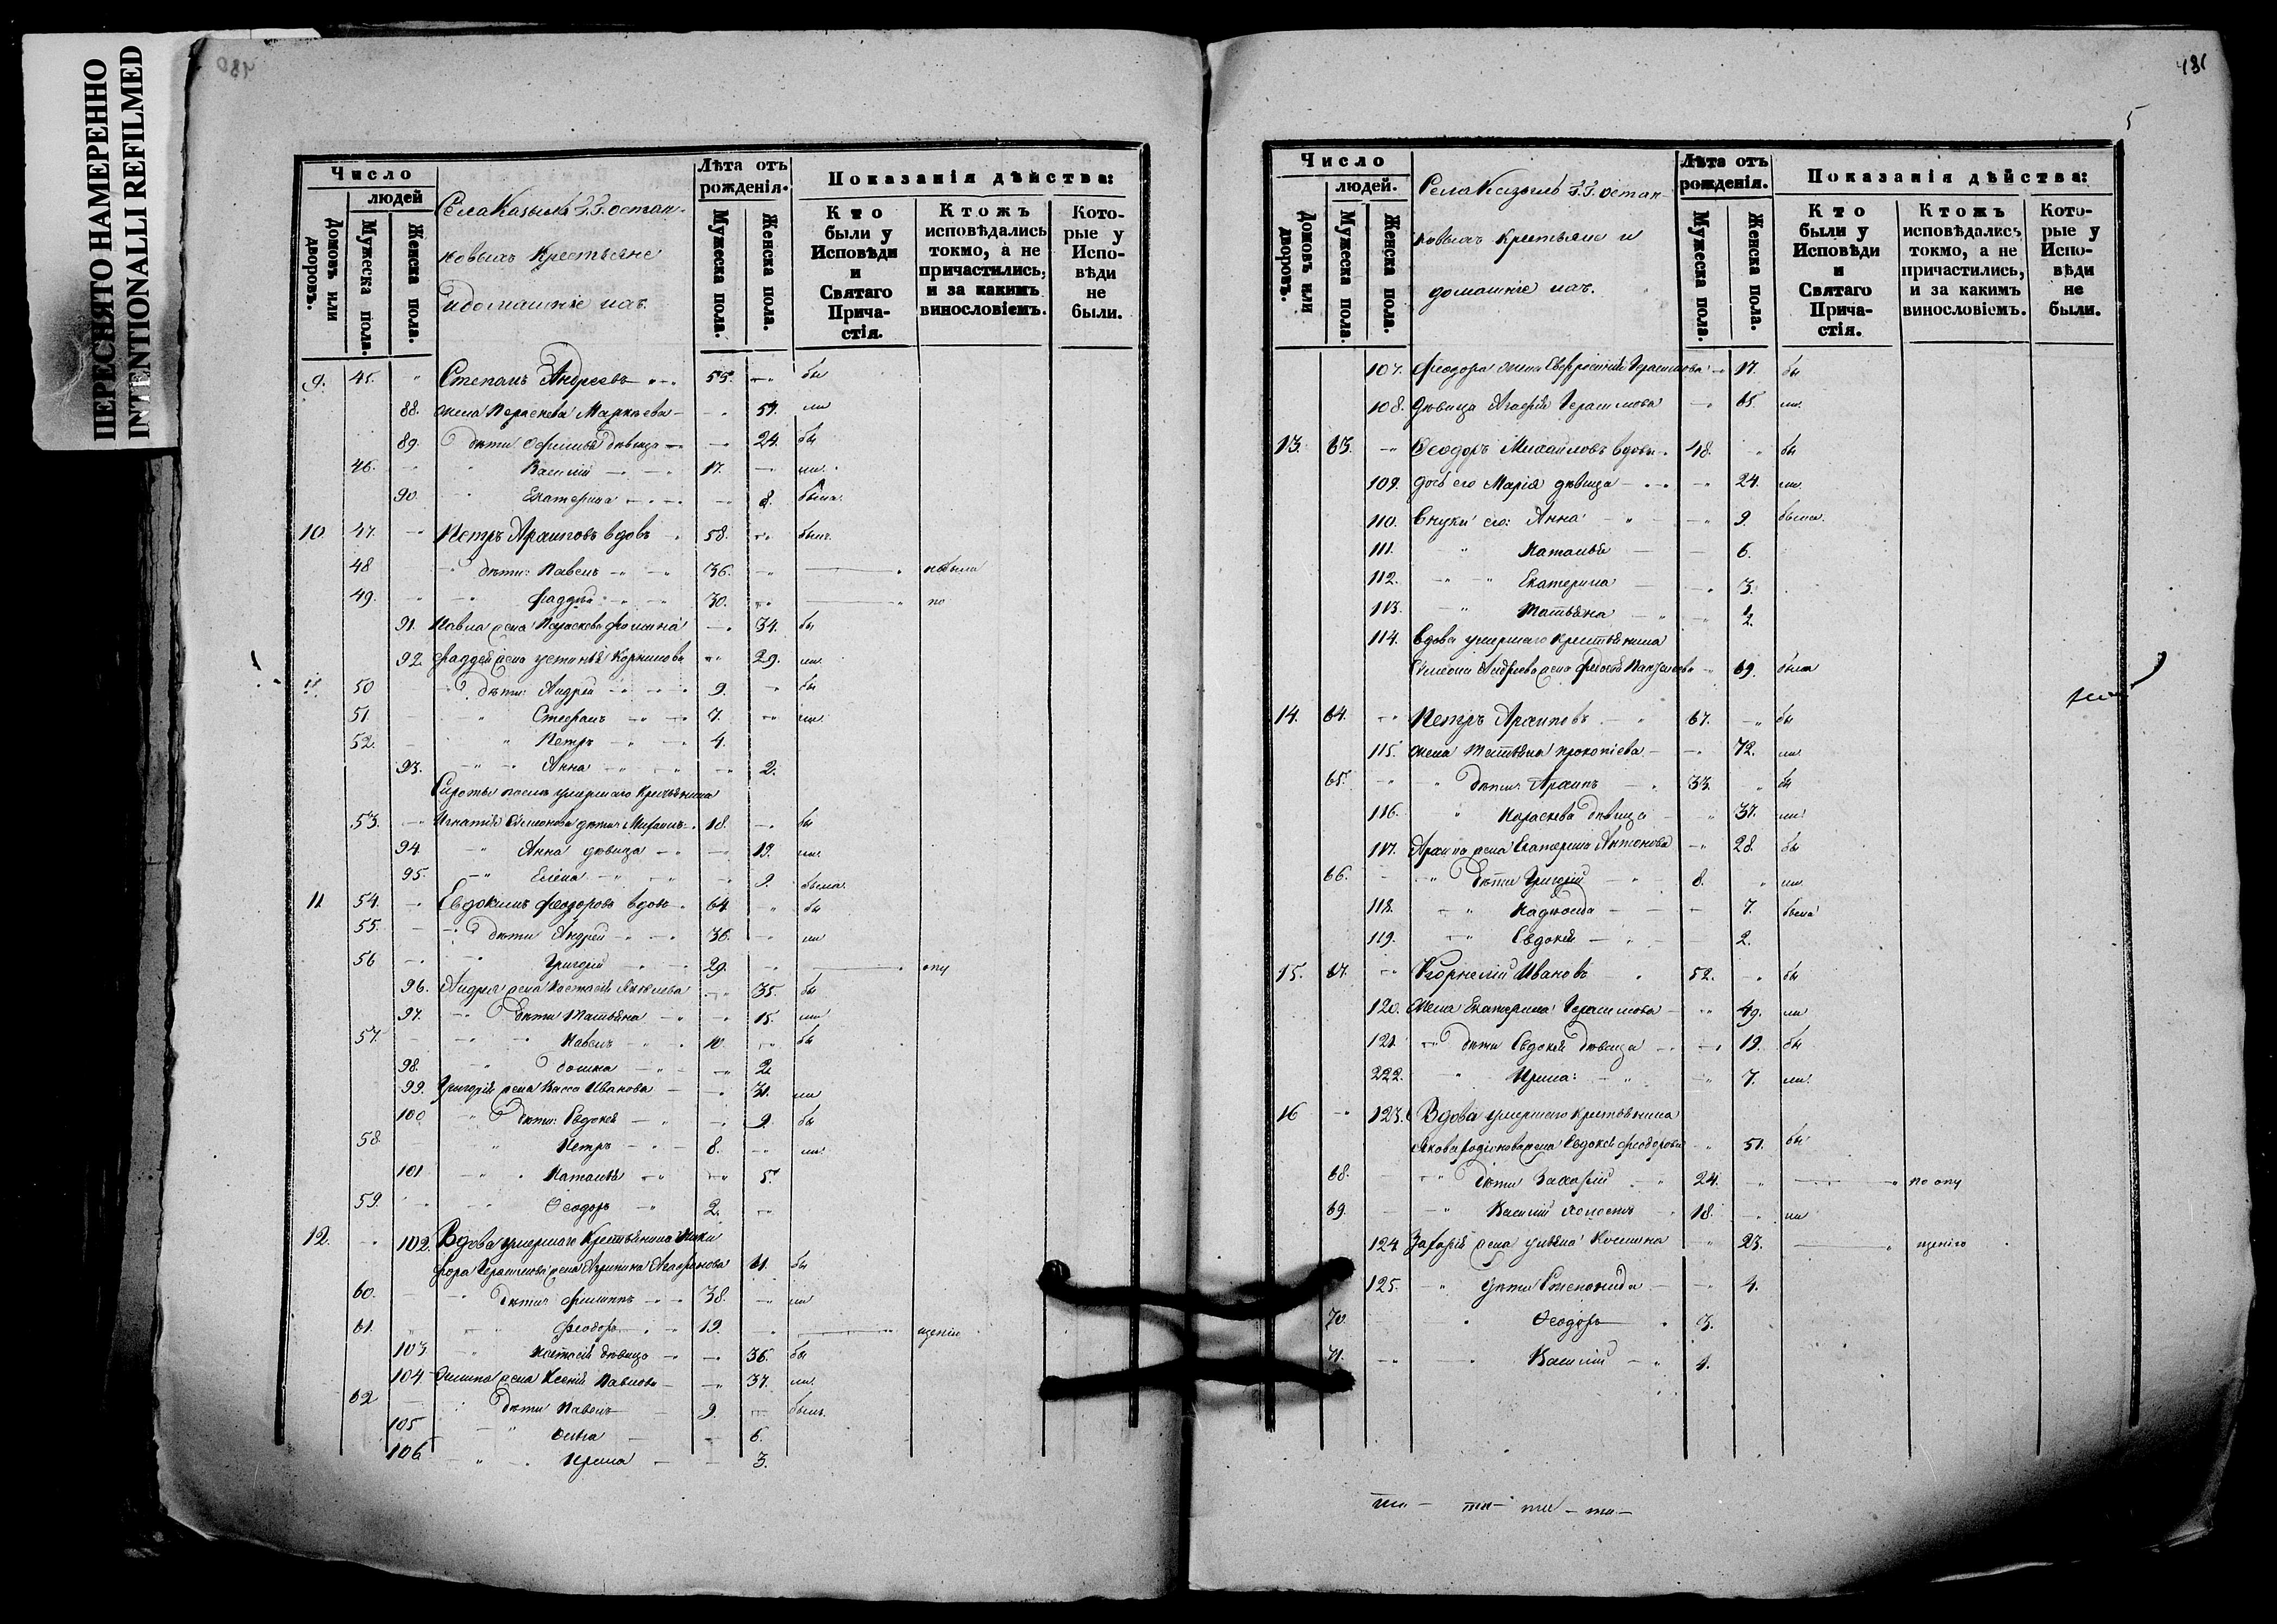 ПЕРЕСНЯТО НАМЕРЕННО
INTENTIONALLI REFILMED
180
Число
людей
Домовъ или дворовъ.
Мужеска пола.
Женска пола.
Села
новыхъ Крестьяне
и домашніе ихъ.
Лѣта отъ рожденія.
Мужеска пола.
Женска пола.
Показанія дѣйства:
Кто были у Исповѣди и Святаго Причастія.
Ктожъ исповѣдались токмо, а не причастились, и за какимъ винословіемъ.
Которые у Исповѣди не были.
9. 45. Степанъ Андреевъ 55. бы
88. жена Параскева Маркьева 57. ли
89. дѣти Офимья дѣвица 24. бы
46. Василій 17. ли.
90. Екатерина 8. была.
10 47. Петръ Архиповъ вдовъ 58. былъ.
48 дѣти: Павелъ 36.
49. Фаддѣй 30. по
91. Павла жена Параскева Фомина 34. бы
92. Фаддея жена Устинья Корнилова 29. ли.
50 дѣти: Андрей 9. бы
51 Стефанъ 7. ли.
52. Петръ 4.
93. Анна 2.
Сироты послѣ умершаго Крестьянина
53. Игнатія Симонова дѣти Михаилъ 18. бы
94. Анна дѣвица 19. ли.
95. Елена 9. была.
11 54. Евдокимъ Феодоровъ вдовъ 64 бы
55. дѣти Андрей 36. ли
56 Григорій 29. опу
96. Андрея жена Настасія Яковлева 35. бы
97. дѣти Татьяна 15. ли
57. Павелъ 10. бы
98. 2.
99. Григорія жена Васса Иванова 31. ли
100 дѣти: Евдокія 9. бы
58. Петръ 8. ли.
101 Наталья 5.
59. Ѳеодоръ 2.
12. 102. Вдова умершаго Крестьянина Ники
фора Герасимова жена Агрипина Агафонова 61. бы
60. дѣти: Филиппъ 38. ли
61. Феодоръ 19. щеніи
103 Настасія дѣвица 36. бы
104. Филипа жена Ксенія Павлова 37. ли.
62 дѣти Павелъ 9. былъ.
105 6.
106 Ирина 3.
181
5
Число
людей.
Домовъ или дворовъ.
Мужеска пола.
Женска пола.
Села
новыхъ Крестьяне и
домашніе ихъ.
Лѣта отъ рожденія.
Мужеска пола.
Женска пола.
Показанія дѣйства:
Кто были у Исповѣди и Святаго Причастія.
Ктожъ исповѣдались токмо, а не причастились, и за какимъ винословіемъ.
Которые у Исповѣди не были.
107. Феодора жена Евфросинія Герасимова 17. бы
108. дѣвица Агафія Герасимова 65. ли.
13. 63. Ѳеодоръ Михайловъ вдовъ 48. бы
109. дочь его Марія дѣвица 24. ли.
110. Внуки его: Анна 9. была.
111. Наталья 6.
112. Екатерина 3.
113. Татьяна 2.
114. Вдова умершаго крестьянина
Симеона Андреева жена 69. была
14. 64. Петръ Архиповъ 67. бы
115. жена Татьяна Прокопіева 72. ли
65. дѣти: Архипъ 33. бы
116. Параскева дѣвица 37. ли
117. Архипа жена Екатерина Антонова 28. бы
66. дѣти Григорій 8. ли.
118. Надѣжда 7. была
119. Евдокія 2.
15. 67. Корнелій Ивановъ 52. бы
120. Жена Екатерина Герасимова 49. ли
121. дѣти Евдокія дѣвица 19. бы
222. Ирина: 7. ли.
16 123. Вдова умершаго крестьянина
Якова Родіонова жена Евдокія Феодорова 51. бы
68. дѣти Захарій 24. по опу
69. Василій холостъ 18. ли
124 Захарія жена Ульяна Козмина 23. щенію
125. дѣти Степанида 4.
70 Ѳеодоръ 3.
71. Василій 1.